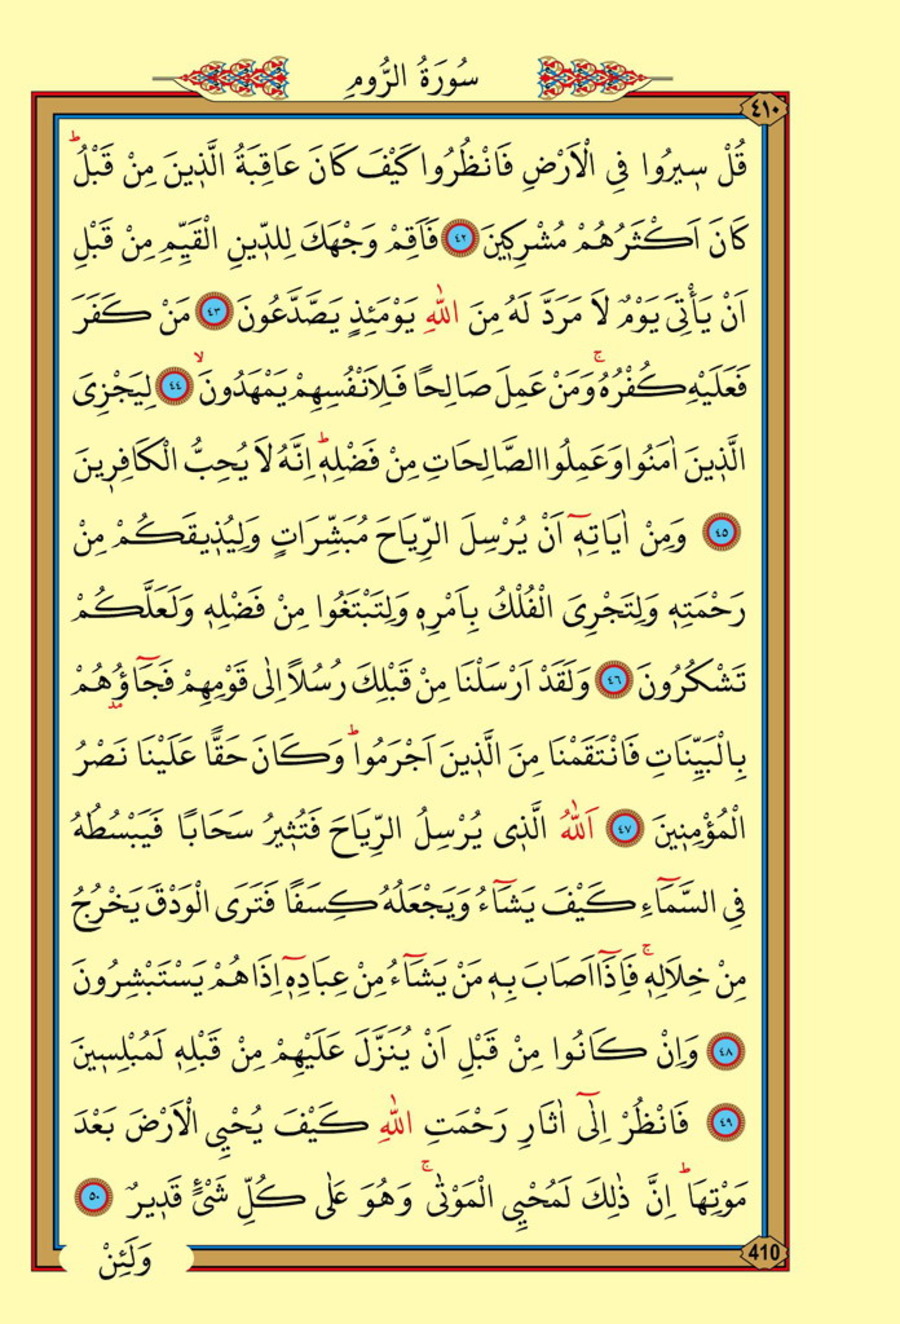 سُورَةُ الرُّومِ
٤١٠
قُلْ سٖيرُوا فِي الْاَرْضِ فَانْظُرُوا كَيْفَ كَانَ عَاقِبَةُ الَّذٖينَ مِنْ قَبْلُؕ
كَانَ اَكْثَرُهُمْ مُشْرِكٖينَ ﴿٤٢﴾ فَاَقِمْ وَجْهَكَ لِلدّٖينِ الْقَيِّمِ مِنْ قَبْلِ
اَنْ يَأْتِيَ يَوْمٌ لَا مَرَدَّ لَهُ مِنَ اللّٰهِ يَوْمَئِذٍ يَصَّدَّعُونَ ﴿٤٣﴾ مَنْ كَفَرَ
فَعَلَيْهِ كُفْرُهُۚ وَمَنْ عَمِلَ صَالِحًا فَلِاَنْفُسِهِمْ يَمْهَدُونَۙ ﴿٤٤﴾ لِيَجْزِيَ
الَّذٖينَ اٰمَنُوا وَعَمِلُوا الصَّالِحَاتِ مِنْ فَضْلِهٖؕ اِنَّهُ لَا يُحِبُّ الْكَافِرٖينَ
﴿٤٥﴾ وَمِنْ اٰيَاتِهٖٓ اَنْ يُرْسِلَ الرِّيَاحَ مُبَشِّرَاتٍ وَلِيُذٖيقَكُمْ مِنْ
رَحْمَتِهٖ وَلِتَجْرِيَ الْفُلْكُ بِاَمْرِهٖ وَلِتَبْتَغُوا مِنْ فَضْلِهٖ وَلَعَلَّكُمْ
تَشْكُرُونَ ﴿٤٦﴾ وَلَقَدْ اَرْسَلْنَا مِنْ قَبْلِكَ رُسُلًا اِلٰى قَوْمِهِمْ فَجَٓاؤُهُمْ
بِالْبَيِّنَاتِ فَانْتَقَمْنَا مِنَ الَّذٖينَ اَجْرَمُواؕ وَكَانَ حَقًّا عَلَيْنَا نَصْرُ
الْمُؤْمِنٖينَ ﴿٤٧﴾ اَللّٰهُ الَّذٖي يُرْسِلُ الرِّيَاحَ فَتُثٖيرُ سَحَابًا فَيَبْسُطُهُ
فِي السَّمَٓاءِ كَيْفَ يَشَٓاءُ وَيَجْعَلُهُ كِسَفًا فَتَرَى الْوَدْقَ يَخْرُجُ
مِنْ خِلَالِهٖۚ فَاِذَٓا اَصَابَ بِهٖ مَنْ يَشَٓاءُ مِنْ عِبَادِهٖٓ اِذَا هُمْ يَسْتَبْشِرُونَ
﴿٤٨﴾ وَاِنْ كَانُوا مِنْ قَبْلِ اَنْ يُنَزَّلَ عَلَيْهِمْ مِنْ قَبْلِهٖ لَمُبْلِسٖينَ
﴿٤٩﴾ فَانْظُرْ اِلٰٓى اٰثَارِ رَحْمَتِ اللّٰهِ كَيْفَ يُحْيِي الْاَرْضَ بَعْدَ
مَوْتِهَاؕ اِنَّ ذٰلِكَ لَمُحْيِي الْمَوْتٰىۚ وَهُوَ عَلٰى كُلِّ شَيْءٍ قَدٖيرٌ ﴿٥٠﴾
وَلَئِنْ
410